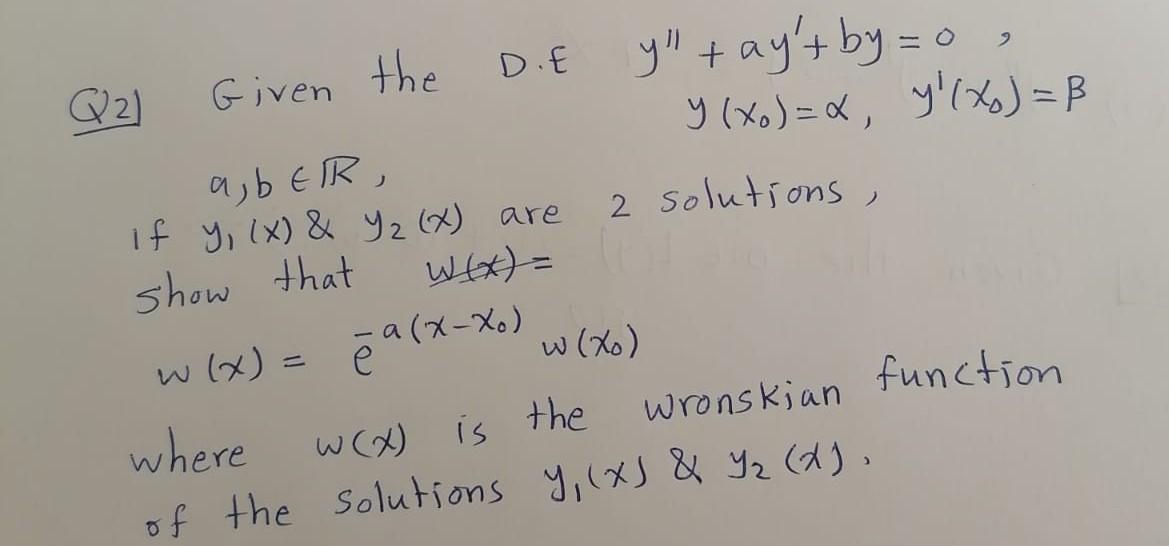 Q2) Given the D.E y'' + ay' + by = 0 ,
y(x₀) = α, y'(x₀) = β
a, b ∈ ℝ,
if y₁(x) & y₂(x) are 2 solutions,
show that w(x) =
w(x) = e^-a(x-x₀) w(x₀)
where w(x) is the wronskian function
of the solutions y₁(x) & y₂(x).